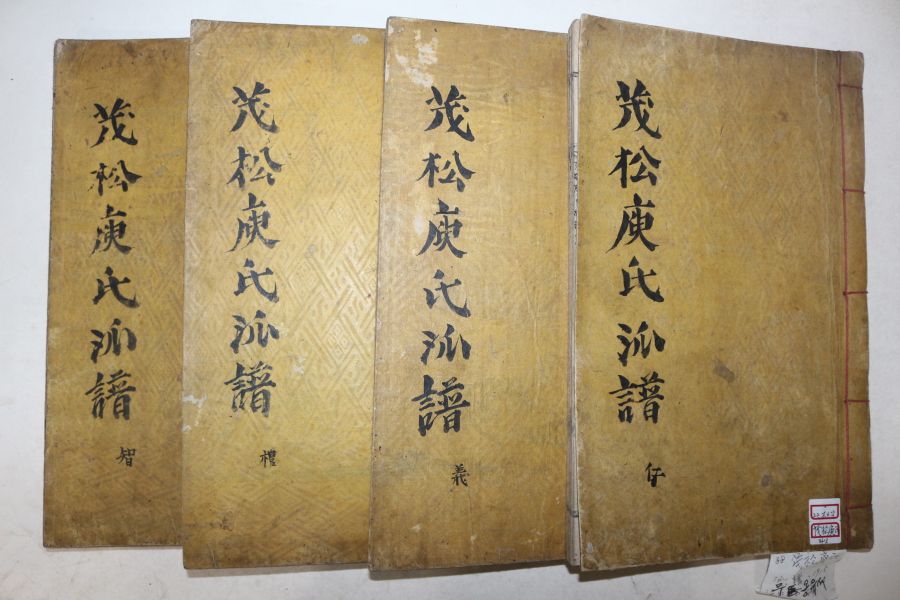 茂松庾氏派譜
仁
茂松庾氏派譜
義
茂松庾氏派譜
禮
茂松庾氏派譜
智